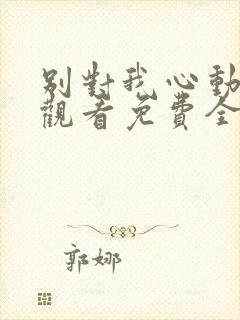 別對我心動
觀看免費全
郭娜